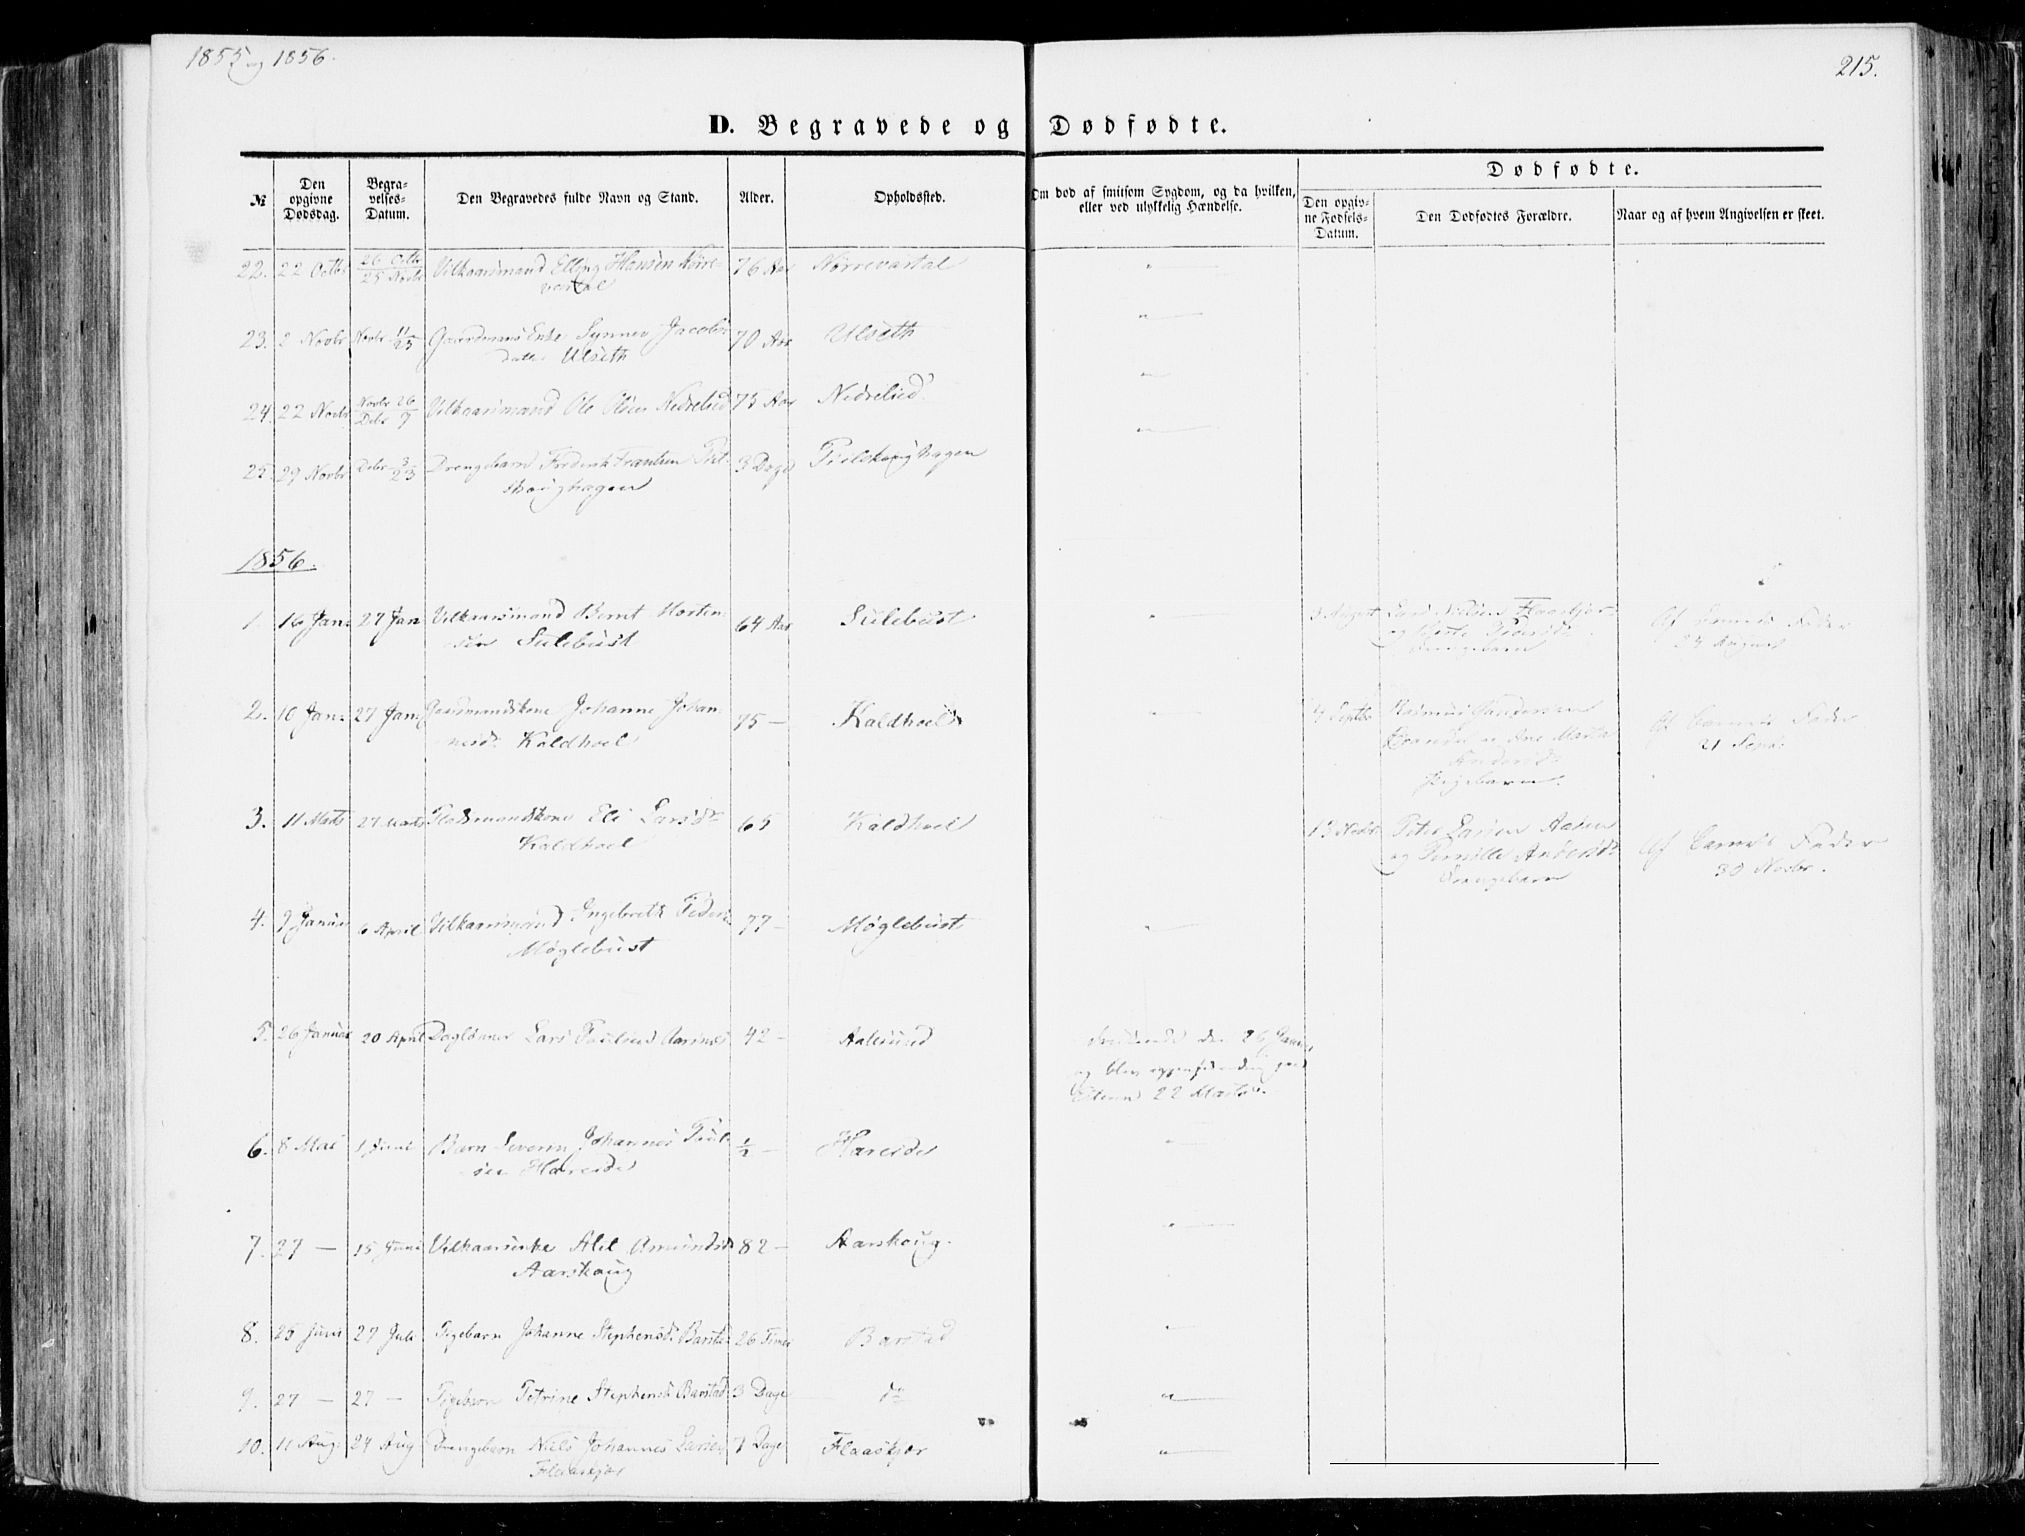 1855 og 1856.
215.
D. Begravede og Dødfødte.
№
Den opgivne Dødsdag.
Begravelses-Datum.
Den Begravedes fulde Navn og Stand.
Alder.
Opholdssted.
Om død af smitsom Sygdom, og da hvilken, eller ved ulykkelig Hændelse.
Dødfødte.
Den opgivne Fødsels-Datum.
Den Dødfødtes Forældre.
Naar og af hvem Angivelsen er skeet.
22. 22 Octbr 26 Octbr 25 Novbr Vilkaarsmand Elling Hansen Nørre- 76 Aar Nørrevartdal "
vartdal
23. 2 Novbr Novbr 11/25 Gaardmans Enke Synnev Jacobs 70 Aar Ulseth "
datter Ulseth
24. 22 Novbr Novbr 26 Debr 7 Vilkaarsmand Ole Olsen Nedrelied 73 Aar Nedrelied "
25. 29 Novbr Debr 3/23 Drengebarn Frederik Frantsen 3 Dage "
1856.
1. 16 Jan: 27 Jan Vilkaarsmand Bernt Morten- 64 Aar Sulebust "
sen Sulebust
3 August Lars Nielsen Flaaskjer
og
Drengebarn
Af Barnets Fader
24 August
2. 10 Jan: 27 Jan: Gaardmandskone Johanne Johan- 75 — Kaldhoel "
nesdr Kaldhoel
4 Septbr Rasmus
Ane Marta
Andersdr
Pigebarn.
Af Barnets Fader
21 Sept:
3. 11 Marts 27 Marts Pladsmandskone Eli Larsdr 65 Kaldhoel
Kaldhoel
13 Novbr Peter Larsen Aasen
og Pernille Andersdr
Drengebarn
Af Barnets Fader
30 Novbr.
4. 9 Januar 6 April Vilkaarsmand Ingebreth Peders 77 — Møglebust "
Møglebust
5. 26 Januar 20 April Daglønner Lars Poulsen Aarsnes 42 — Aalesund
den 26 Januar
og blev
22 Marts
6. 8 Mai 1 Juni Barn Severin Johannes Paul- 1/2 — Hareide "
sen Hareide
7. 27 — 15 Juni Vilkaarsenke Alet Amundsdr 82 — Aarskoug. "
Aarskoug
8. 25 Juni 27 Juli Pigebarn Johanne Stephensdr Barstad 26 Timer Barstad "
9. 27 — 27 — Pigebarn Petrine Stephensdr Barstad 3 Dage do "
10. 11 Aug: 24 Aug Drengebarn Niels Johannes Larsen 7 Dage Flaaskjer "
Flaaskjer